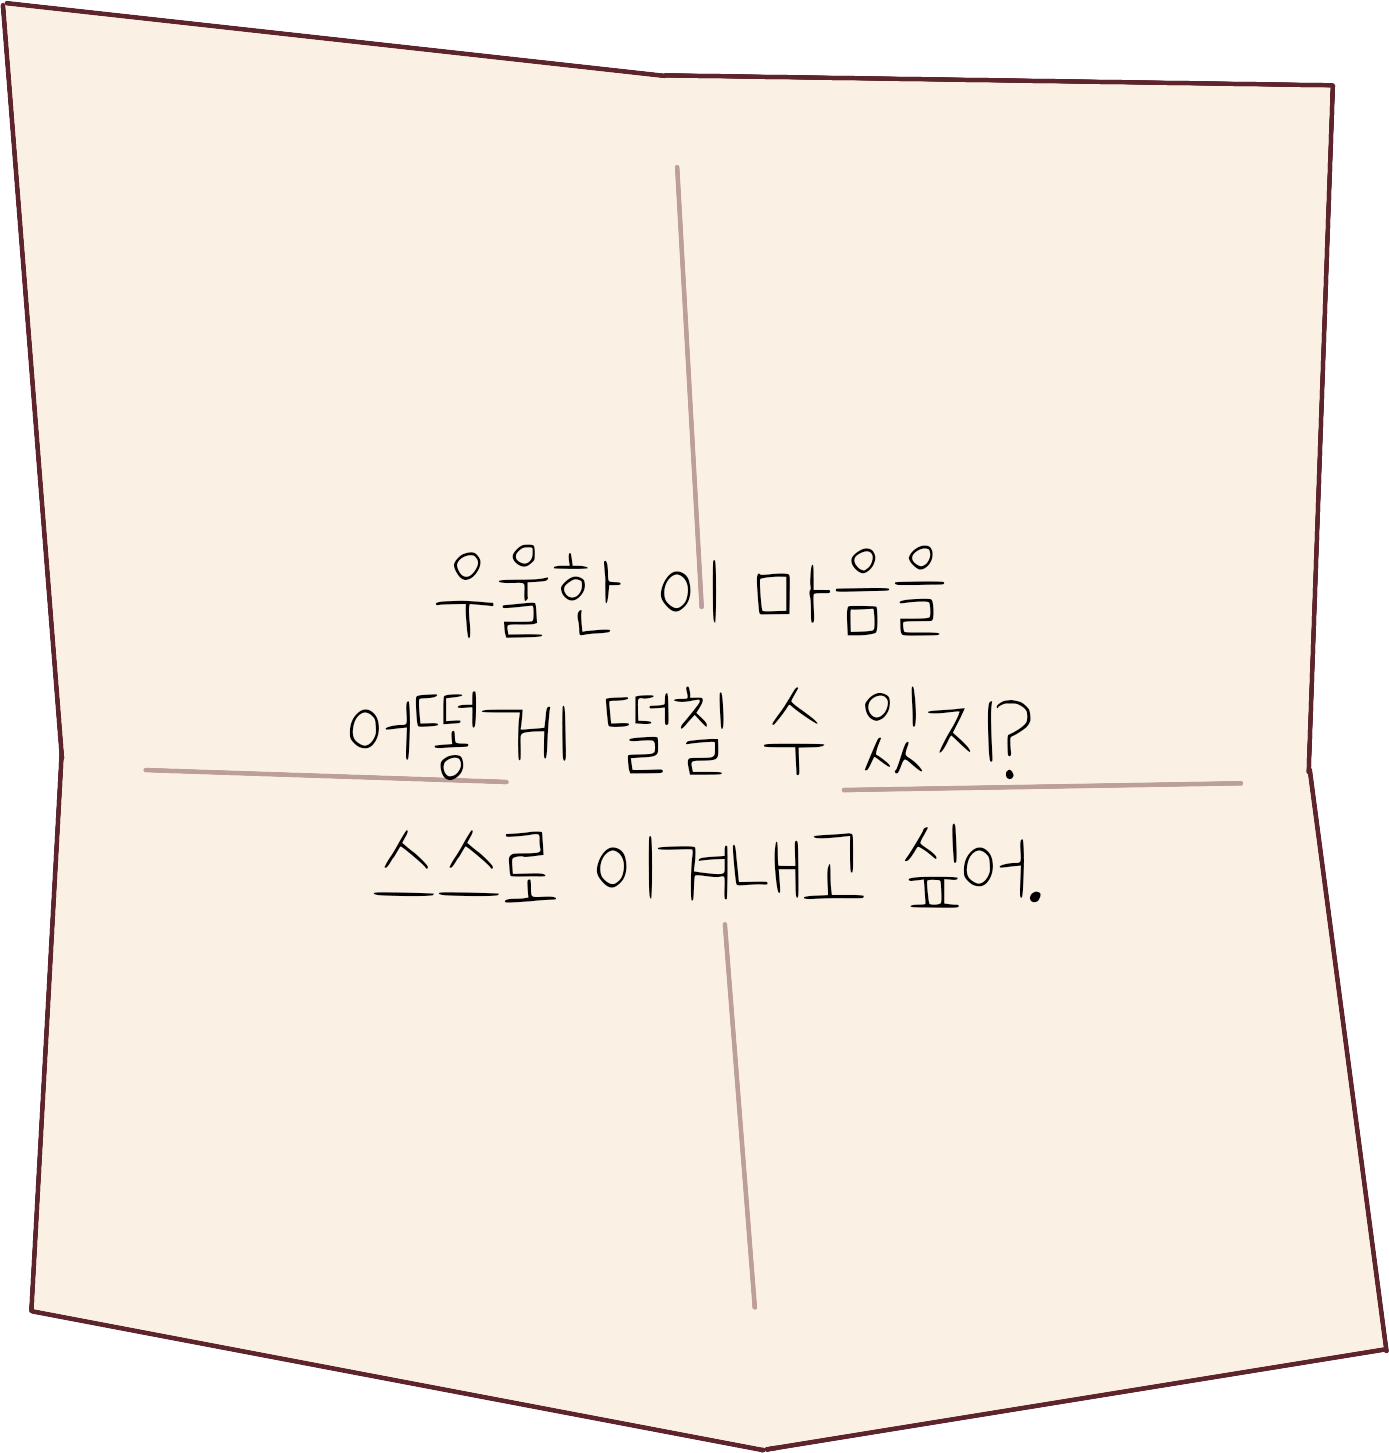 우울한 이 마음을
어떻게 떨칠 수 있지?
스스로 이겨내고 싶어.